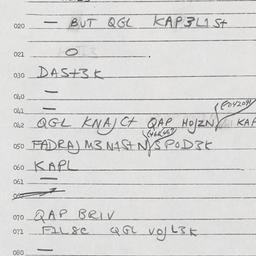 020 — BUT QGL KAP3L1St
021 O
030 DASt3K
040 —
041 —
042 QGL KNAJCt QAP HOJZN KAP
050 FADRAJM3NtStN/SPOD3K
060 KAPL
061 —
070 QAP BRIV
071 F2L8C QGL VOJL3K
080 —